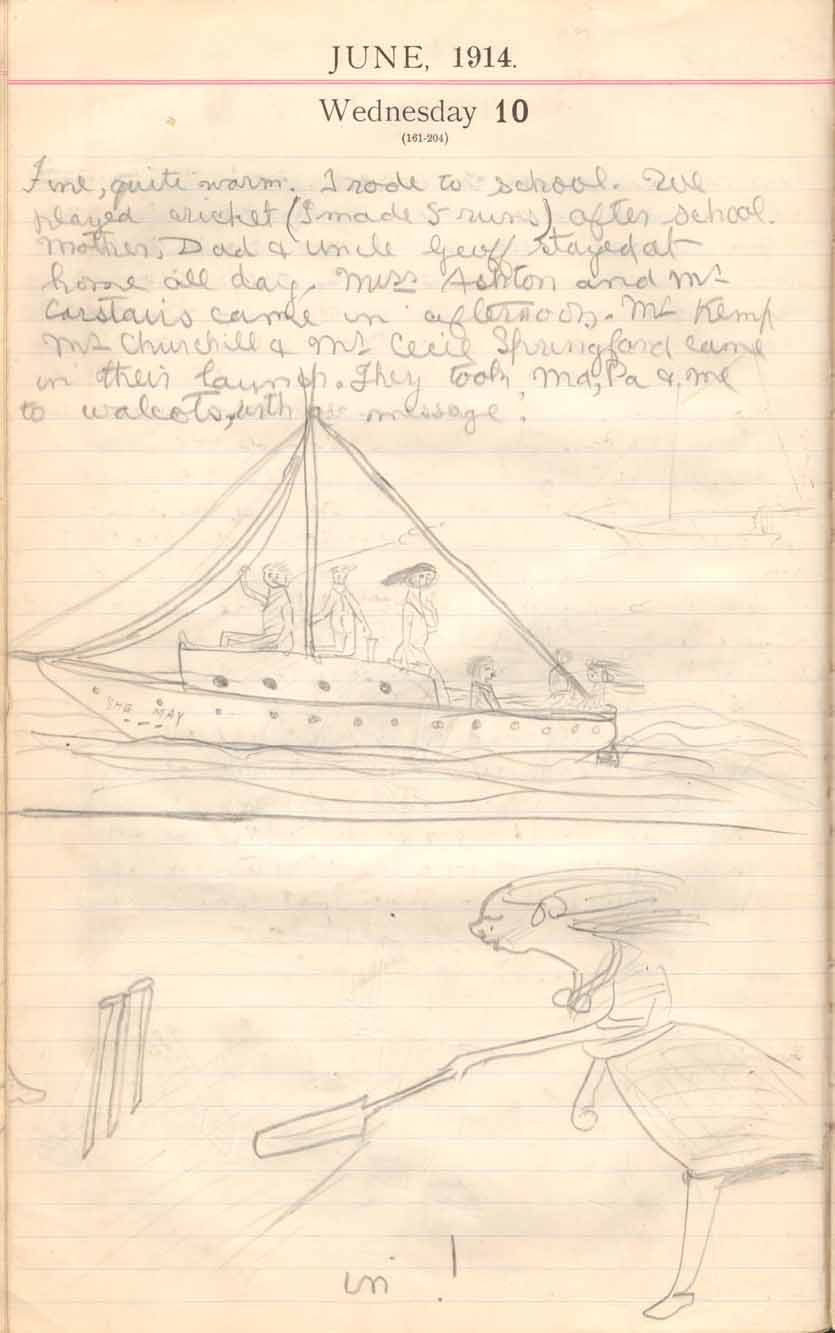 JUNE, 1914.
Wednesday 10
(161-204)
Fine, quite warm. I rode to school. We
played cricket (I made 5 runs) after school.
Mother, Dad & uncle Geoff stayed at
home all day. Miss Ashton and Mr
Carstairs came in afternoon. Mr Kemp
Mr Churchill & Mr Cecil Springford came
in their launch. They took Ma, Pa & me
to walcots, with a message.
SHE MAY
in !